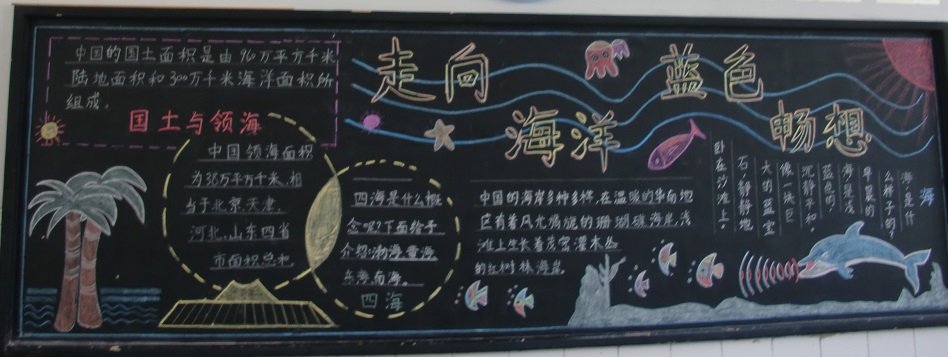 走向 蓝色
海洋 畅想
中国的国土面积是由960万平方千米
陆地面积和300万千米海洋面积所
组成。
国土与领海
中国领海面积
为38万平方千米,相
当于北京、天津、
河北、山东四省
市面积总和
四海是什么概
念呢?下面给予
介绍:渤海、黄海、
东海、南海。
四海
中国的海岸多种多样,在温暖的
区有着风光
滩上生长着茂密灌木丛
的红树林海岸。
海
海是什
么样子的?
早晨的
海是浅
蓝色的,
沉静平和,
像一块巨
大的蓝宝
石,静静地
卧在沙滩上。